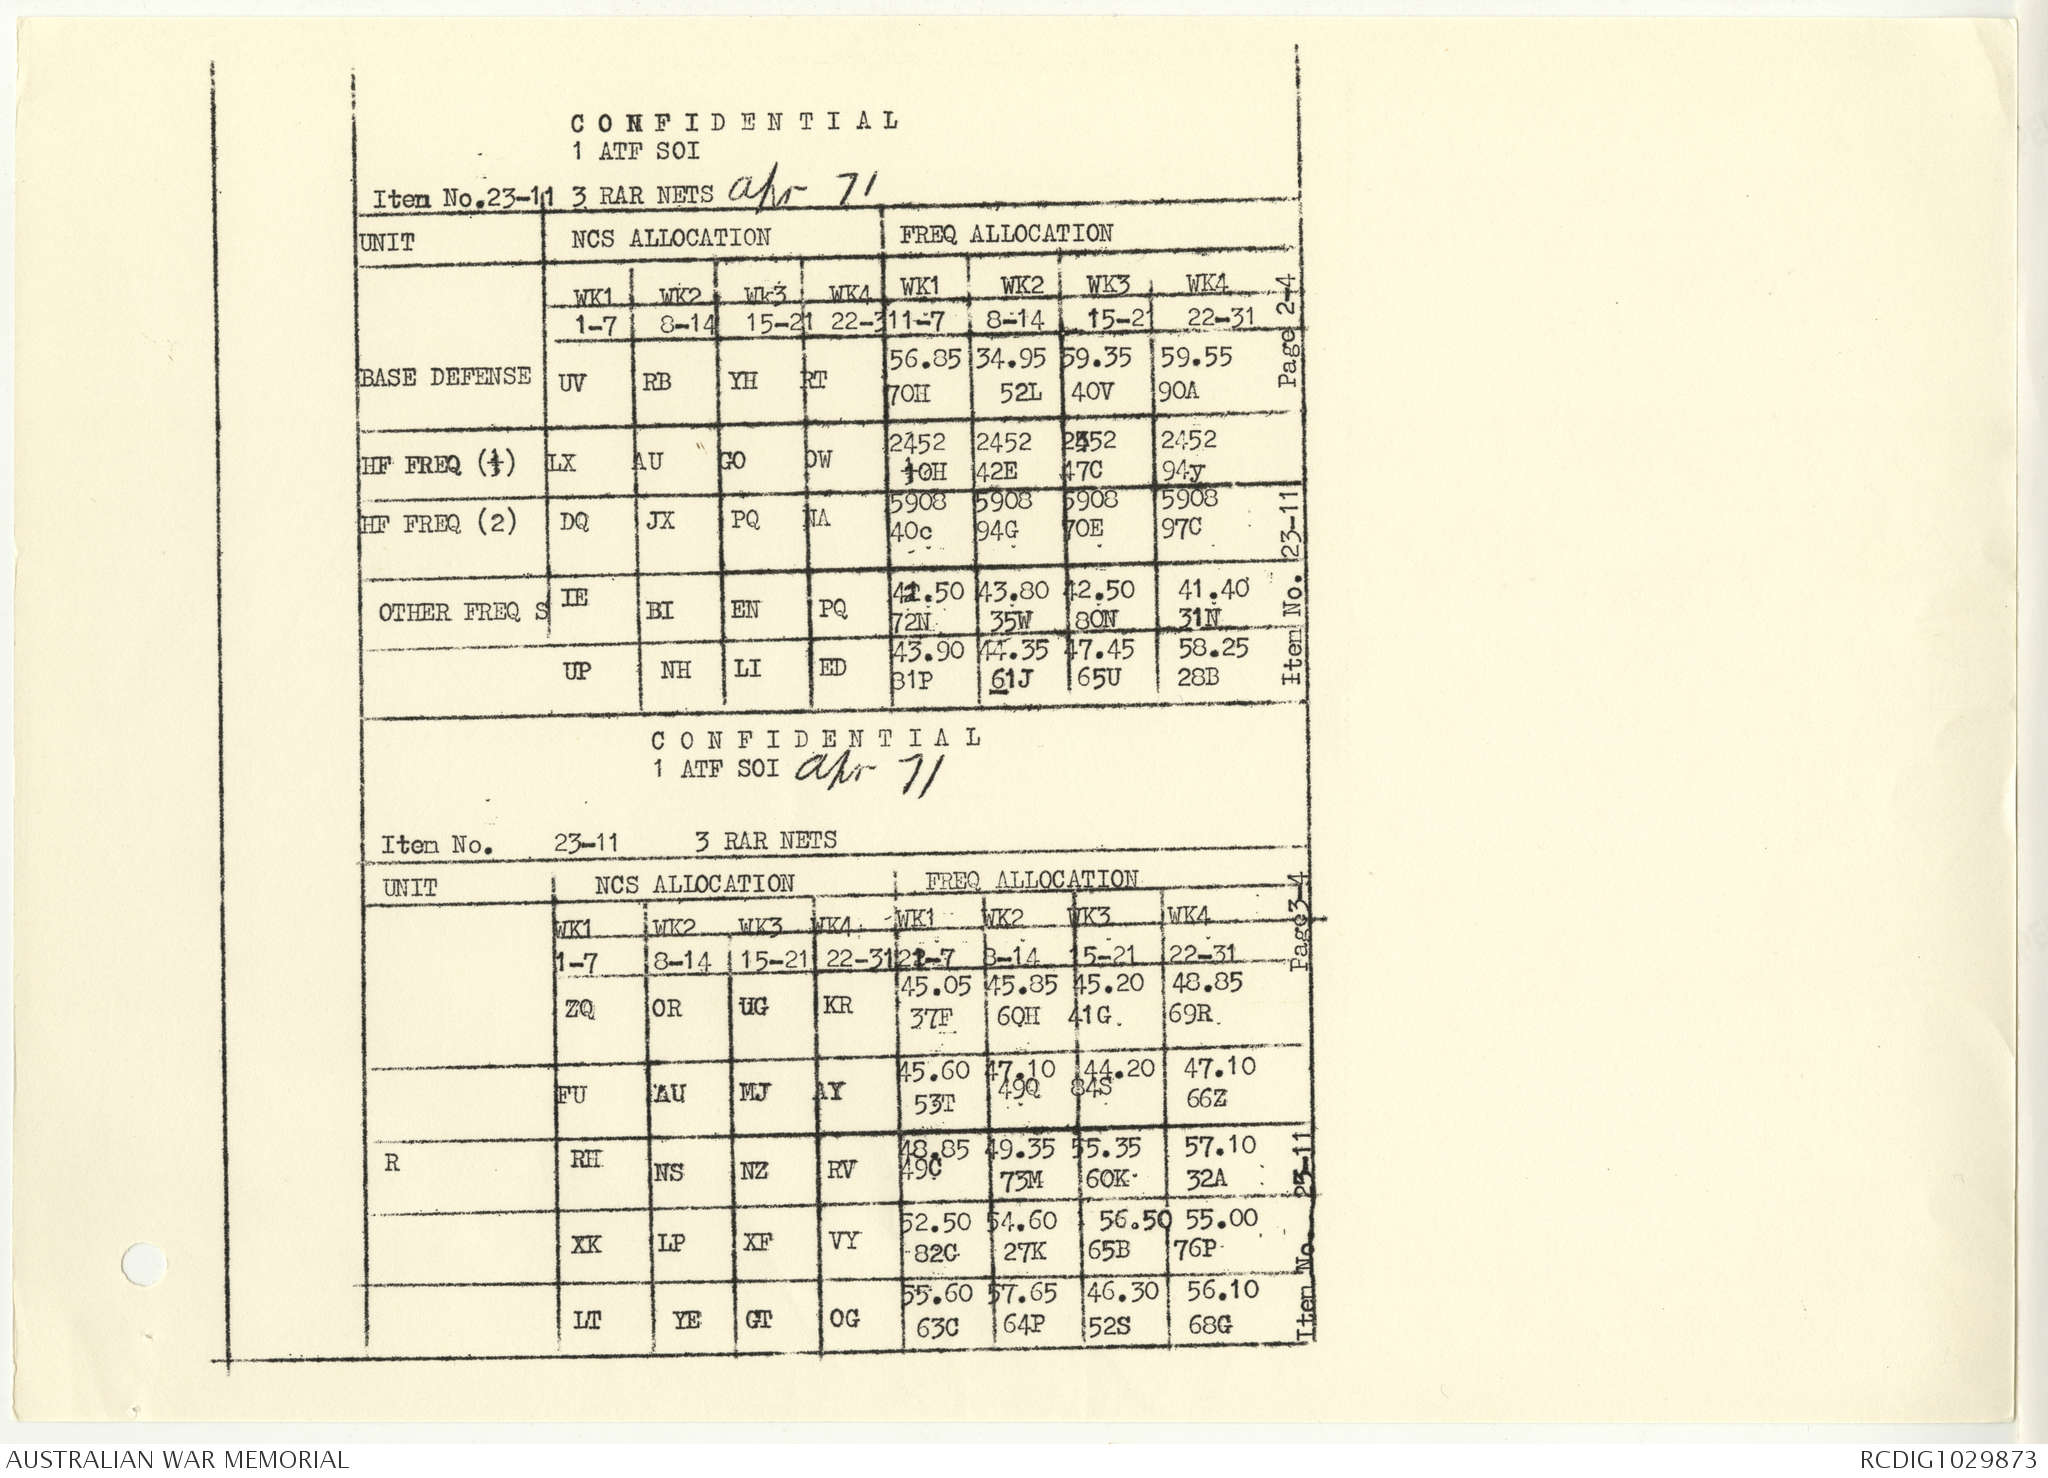 C O N F I D E N T I A L
1 ATF SOI
Item No.23-11 3 RAR NETS apr 71
UNIT NCS ALLOCATION FREQ ALLOCATION
WK1 WK2 Wk3 WK4 WK1 WK2 WK3 WK4
1-7 8-14 15-21 22-311-7 8-14 15-21 22-31
56.85 34.95 59.35 59.55
BASE DEFENSE UV RB YH RT 70H 52L 40V 90A
2452 2452 2452 2452
HF FREQ (1) LX AU GO OW 10H 42E 47C 94y
5908 5908 5908 5908
HF FREQ (2) DQ JX PQ NA 40c 94G 70E 97C
42.50 43.80 42.50 41.40
OTHER FREQ S IE BI EN PQ 72N 35W 80N 31N
43.90 44.35 47.45 58.25
UP NH LI ED 81P 61J 65U 28B
Page 2-4
Item No. 23-11
C O N F I D E N T I A L
1 ATF SOI apr 71
Item No. 23-11 3 RAR NETS
UNIT NCS ALLOCATION FREQ ALLOCATION
WK1 WK2 WK3 WK4 WK1 WK2 WK3 WK4
1-7 8-14 15-21 22-31 1-7 8-14 15-21 22-31
45.05 45.85 45.20 48.85
ZQ OR UG KR 37F 60H 41G 69R
45.60 47.10 44.20 47.10
FU AU MJ AY 53T 49Q 84S 66Z
48.85 49.35 55.35 57.10
R RH NS NZ RV 49C 73M 60K 32A
52.50 54.60 56.50 55.00
XK LP XF VY 82G 27K 65B 76P
55.60 57.65 46.30 56.10
LT YE GT OG 63C 64P 52S 68G
Page3-4
Item No. 23-11
AUSTRALIAN WAR MEMORIAL RCDIG1029873